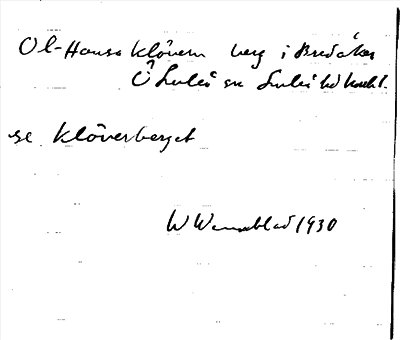 Ol-Hansa klövern berg i Bredåker
Ö Luleå sn Luleå td Norrb l.
se Klöverberget
W Wennblad 1930